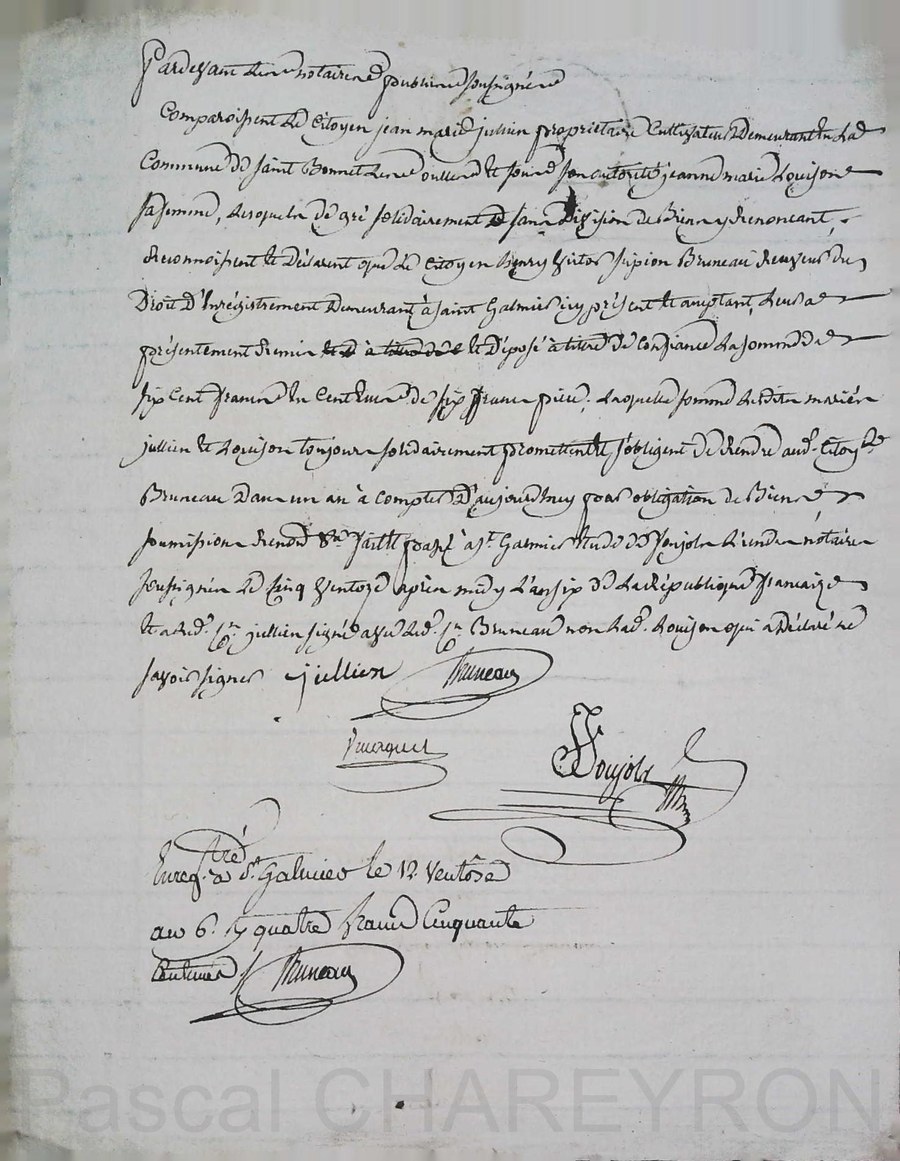 Pardevant les notaires publics soussignés
Comparoissent le Citoyen jean marie jullien propriétaire Cultivateur demeurant en la
Commune de saint Bonnet les oulles et sous son autorité jeanne marie Louison
sa femme, lesquels de gré solidairement sans division de Biens y renonçant,
Reconnoissent et Déclarent que le Citoyen Henry Victor sipion Bruneau Receveur du
Droit d'Enrégistrement demeurant à saint Galmier icy présent et acceptant, leur a
présentement Remis et Déposé à titre de Confiance la somme de
six Cent francs en Cent Ecus de six francs pièce, Laquelle somme lesdits mariés
jullien et Louison toujours solidairement promettent et s'obligent de Rendre aud. Citoyen
Bruneau Dans un an à Compter d'aujourdhuy pour obligation de Biens
soumissions Renonc. fait et passé a St. Galmier Etude de Ponjols l'un des notaires
soussignés le Cinq Ventoze après midy L'an six de La République française
et a led. Cn. jullien signé avec led. Cn. Bruneau non lad. Louison qui a Déclaré ne
savoir signer jullien Bruneau
Ponjols
Enregtré. à St. Galmier le 12. Ventôse
an 6. quatre francs Cinquante
Centimes Bruneau
Pascal CHAREYRON